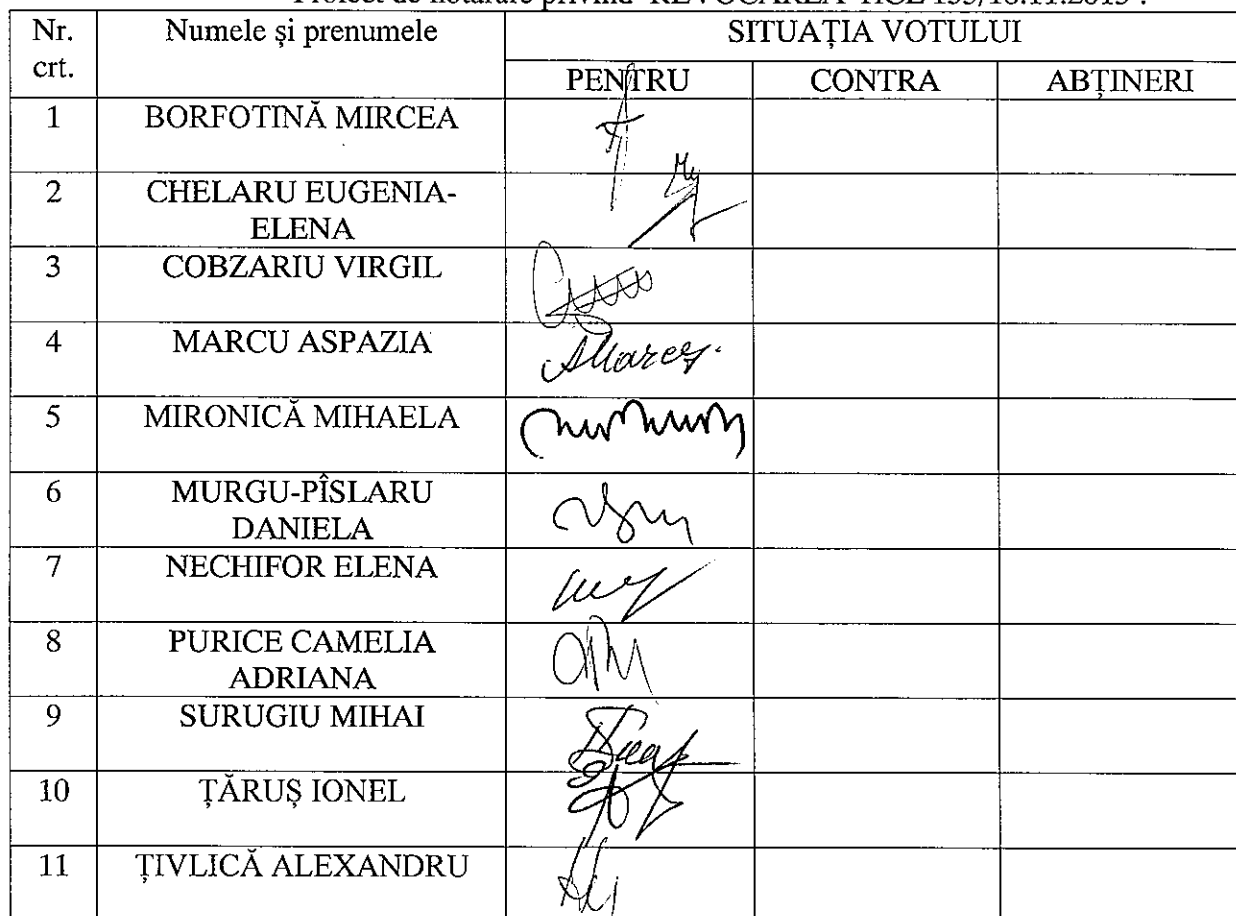 Proiect de hotărâre privind "REVOCAREA HCL
Nr.
crt.
Numele și prenumele
SITUAȚIA VOTULUI
PENTRU
CONTRA
ABȚINERI
1
BORFOTINĂ MIRCEA
2
CHELARU EUGENIA-
ELENA
3
COBZARIU VIRGIL
4
MARCU ASPAZIA
5
MIRONICĂ MIHAELA
6
MURGU-PÎSLARU
DANIELA
7
NECHIFOR ELENA
8
PURICE CAMELIA
ADRIANA
9
SURUGIU MIHAI
10
ȚĂRUȘ IONEL
11
ȚIVLICĂ ALEXANDRU